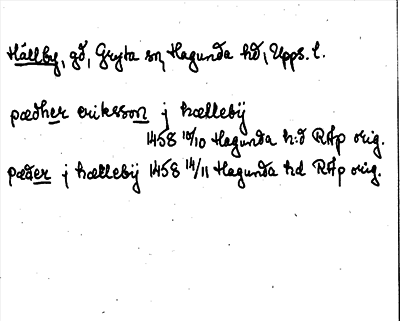 Hällby, gd, Gryta sn, Hagunda hd, Upps. l.
pædher eriksson j hællebij
1458 10/10 Hagunda h:d RAp orig.
pæder j hællebij 1458 14/11 Hagunda hd RAp orig.